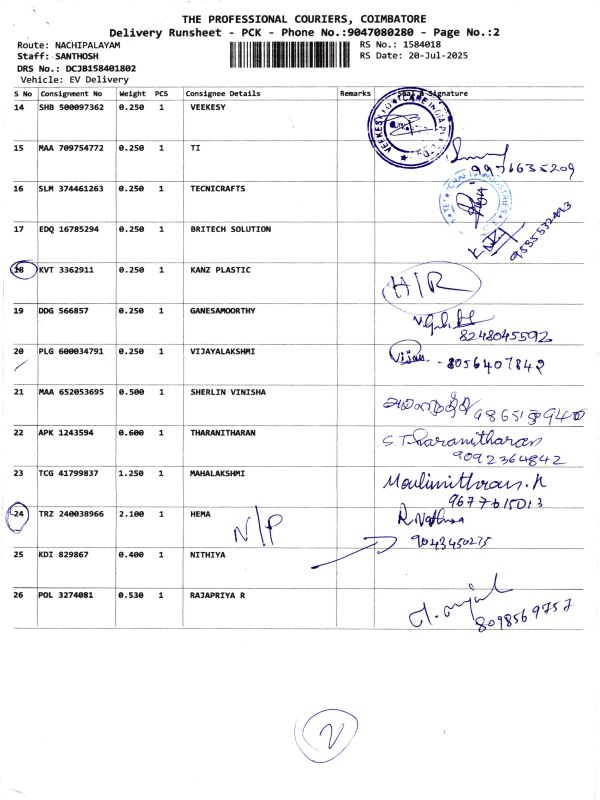 THE PROFESSIONAL COURIERS, COIMBATORE
Delivery Runsheet - PCK - Phone No.:9047080280 - Page No.:2
Route: NACHIPALAYAM RS No.: 1584018
Staff: SANTHOSH RS Date: 20-Jul-2025
DRS No.: DCJB158401802
Vehicle: EV Delivery
S No Consignment No Weight PCS Consignee Details Remarks Seal & Signature
14 SHB 500097362 0.250 1 VEEKESY
15 MAA 709754772 0.250 1 TI
9976635209
16 SLM 374461263 0.250 1 TECNICRAFTS
17 EDQ 16785294 0.250 1 BRITECH SOLUTION
18 KVT 3362911 0.250 1 KANZ PLASTIC H/R
19 DDG 566857 0.250 1 GANESAMOORTHY
8248045592
20 PLG 600034791 0.250 1 VIJAYALAKSHMI 8056407842
21 MAA 652053695 0.500 1 SHERLIN VINISHA
22 APK 1243594 0.600 1 THARANITHARAN S.Tharanitharan
9092364842
23 TCG 41799837 1.250 1 MAHALAKSHMI
9677615013
24 TRZ 240038966 2.100 1 HEMA N/P
9043450275
25 KDI 829867 0.400 1 NITHIYA
26 POL 3274081 0.530 1 RAJAPRIYA R
8098569757
2